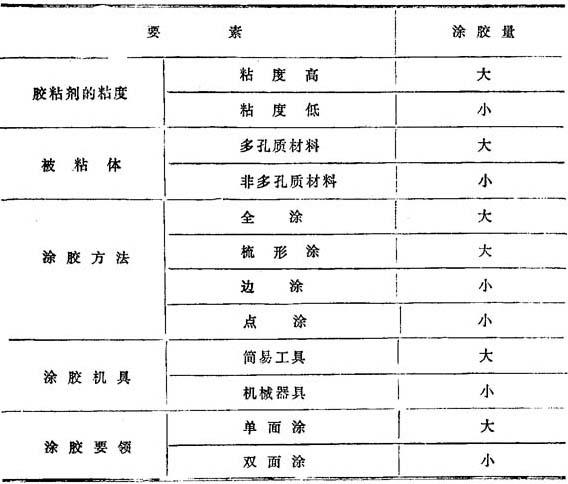 要 素 涂胶量
胶粘剂的粘度 粘度高 大
粘度低 小
被粘体 多孔质材料 大
非多孔质材料 小
涂胶方法 全涂 大
梳形涂 大
边涂 小
点涂 小
涂胶机具 简易工具 大
机械器具 小
涂胶要领 单面涂 大
双面涂 小